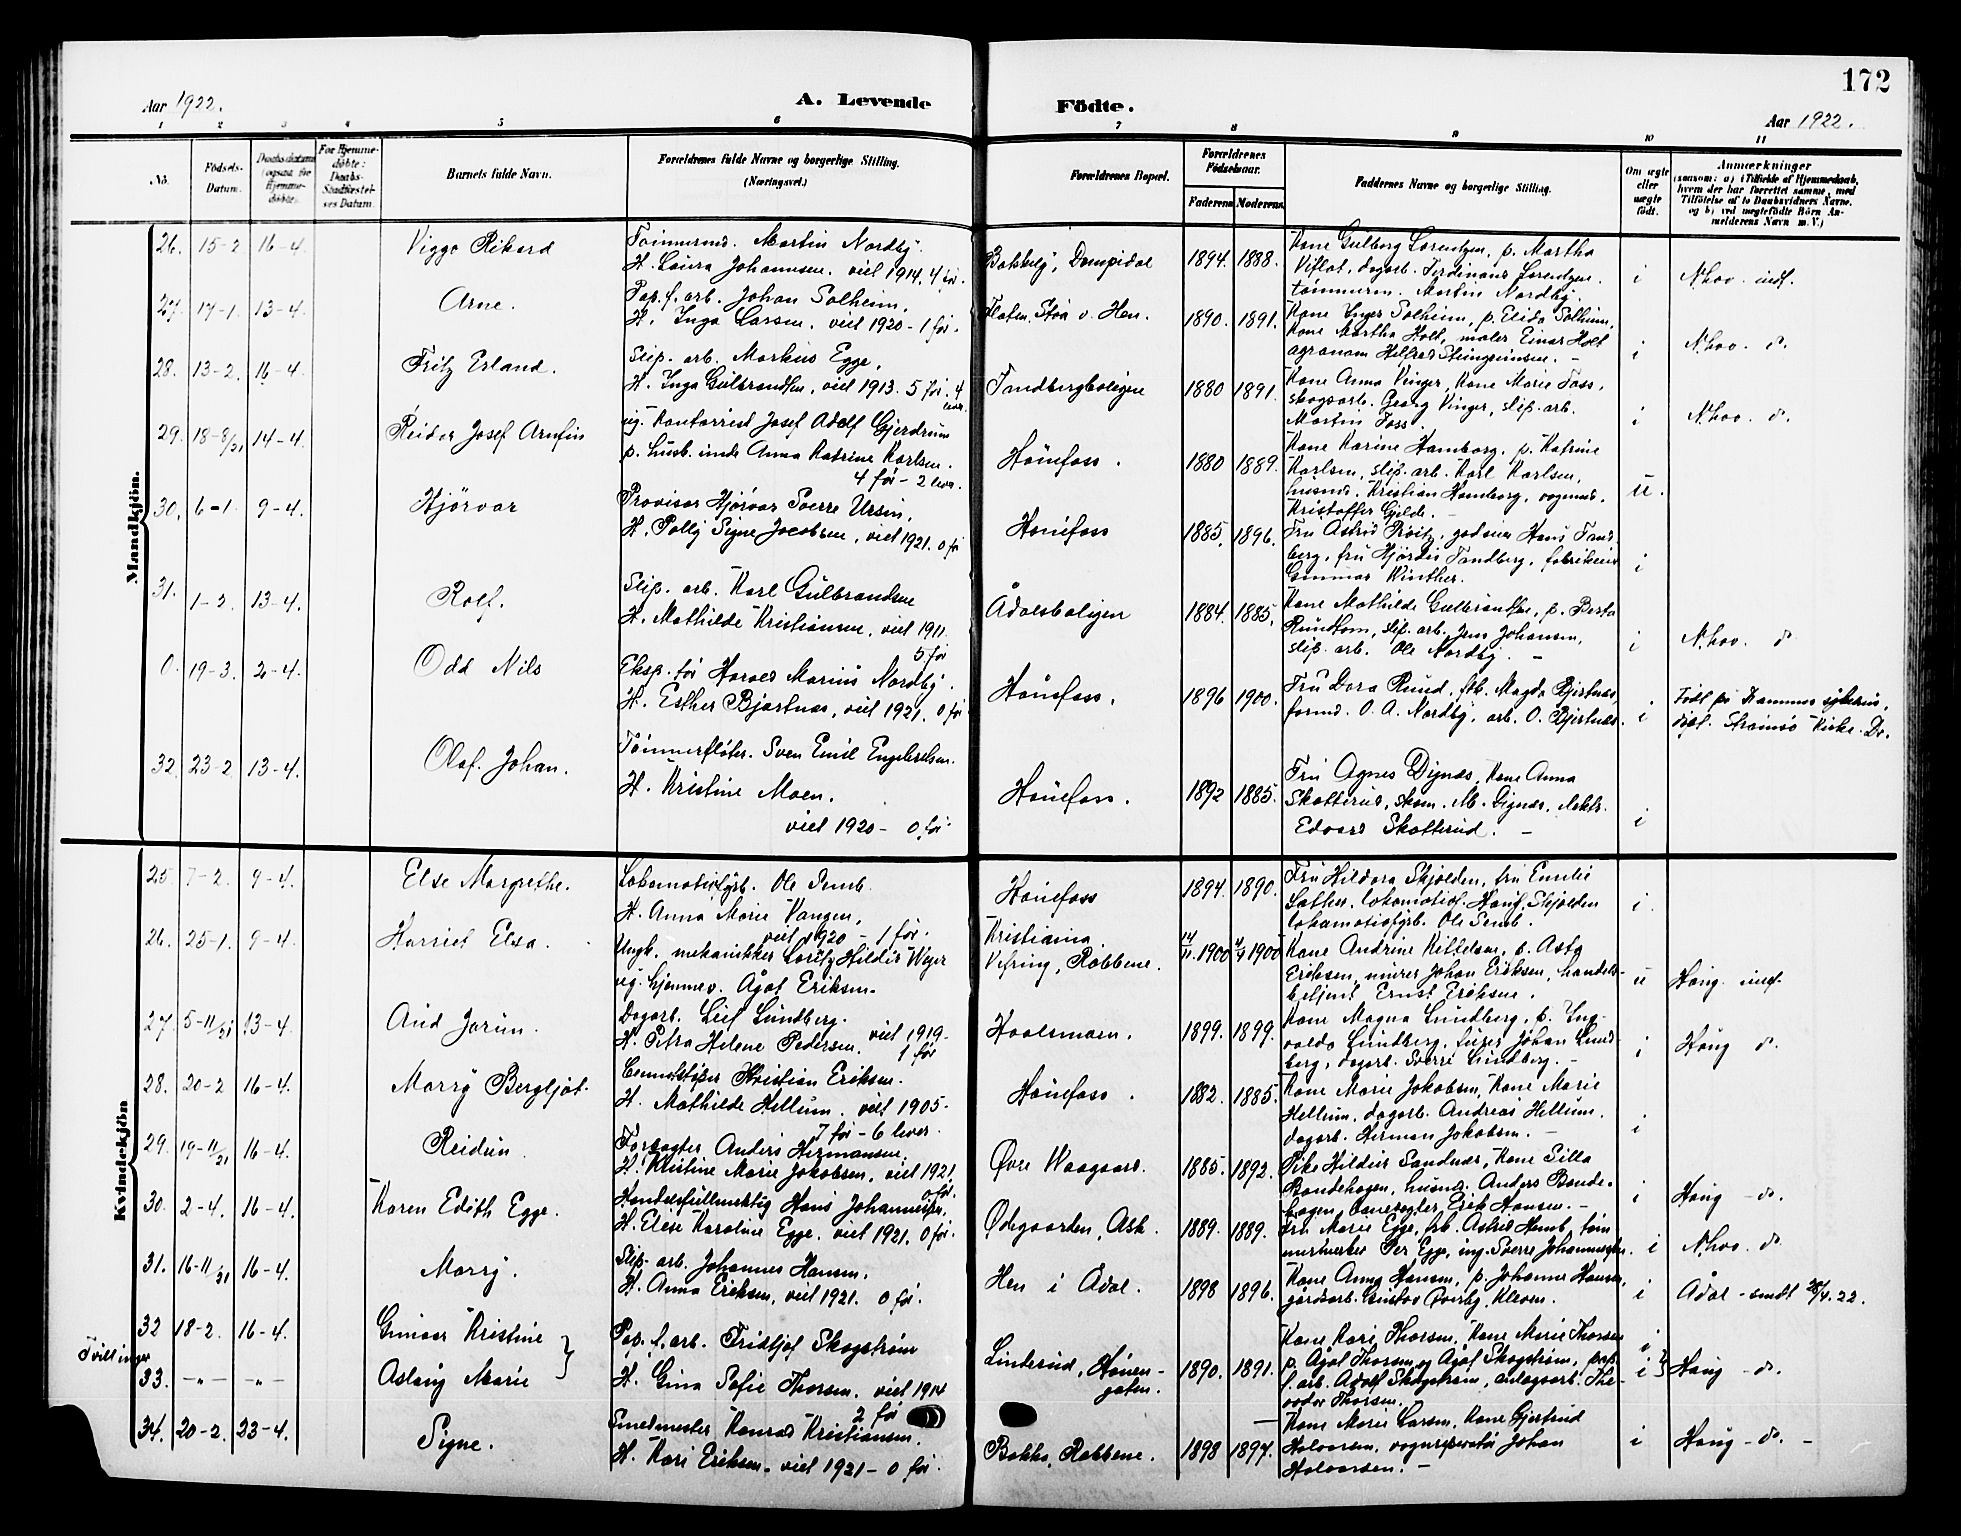 172
Aar 1922.
A. Levende
Födte.
Aar 1922.
1 2 3 4 5 6 7 8 9 10 11
No.
Födsels-Datum.
Daabsdatum (ogsaa for Hjemmedöbte)
For Hjemmedöbte: Daabs-Stadfæstelses Datum.
Barnets fulde Navn.
Forældrenes fulde Navne og borgerlige Stilling.
(Næringsvei.)
Forældrenes Bopæl.
Forældrenes Födselsaar.
Faderens
Moderens
Faddernes Navne og borgerlige Stilling.
Om ægte eller uægte födt.
Anmærkninger
(saasom: a) i Tilfælde af Hjemmedaab,
hvem der har forrettet samme, med
Tilföielse af to Daabsvidners Navne,
og b) ved uægtefödte Börn An-
melderens Navn m. V.)
Mandkjön.
26. 15-2 16-4. Viggo Rikard
Tömmermd. Martin Nordby.
H. Laura Johannesen. viet 1914. 4 før.
Bakkely, Dompidal 1894. 1888.
Kone Gulborg Lorentzen, p. Martha
Viflat, dagarb. Ferdinand Lorentzen.
tömmerm. Martin Nordby.
i N.hov. indf.
27. 17-1. 13-4. Arne.
Pap.f. arb. Johan Solheim,
H. Inga Larsen, viet 1920 - 1 før.
Flaten, Støa v. Hen. 1890. 1891.
Kone Inger Solheim, p. Elida Solheim,
Kone Martha Holt, maler Einar Holt
agronom Helfred Steingrimsen. -
i N.hov. do.
28. 13-2. 16-4. Fritz Erland.
Slip. arb. Markus Egge,
H. Inga Gulbrandsen, viet 1913. 5 før. 4 lever.
Tandbergboligen 1880 1891.
Kone Anna Vinger, Kone Marie Foss,
skogsarb. Georg Vinger, slip. arb.
Martin Foss.
i N.hov. do.
29. 18-8/21 14-4. Reidar Josef Arnfin
ug. Kontorrist Josef Adolf Gjerdrum
p. husb. inde Anna Katrine Karlsen.
4 før - 2 lever.
Hönefoss. 1880 1889.
Kone Karine Hamborg, p. Katrine
Karlsen, slip. arb. Karl Karlsen,
husmd. Kristian Hamborg, vognmd.
Kristoffer Gjelde. -
u.
30. 6-1. 9-4. Hjörvar
Provisor Hjörvar Sverre Ursin,
H. Polly Signe Jacobsen, viet 1921. 0 før
Hönefoss 1885. 1896.
Fru Astrid Prøitz, godseier Hans Tand-
berg, fru Hjørdis Tandberg, fabrikeier
Gunnar Winther.
i
31. 1-2. 13-4. Rolf.
Slip. arb. Karl Gulbrandsen
H. Mathilde Kristiansen, viet 1911.
5 før
Ådalsboligen 1884. 1885.
Kone Mathilde Gulbrandsen, p. Berta
Rundtom, slip. arb. Jens Johansen,
slip. arb. Ole Nordby. -
i N.hov. do
0. 19-3. 2-4. Odd Nils
Eksp. før Harald Marius Nordby.
H. Esther Bjertnæs, viet 1921. 0 før
Hönefoss. 1896 1900.
Fru Dora Rund, frk. Magda Bjertnæs,
formd. O. A. Nordby, arb. O. Bjertnæs.
i Født på Drammens sykehus,
døpt. Strømsø Kirke. Dr.
32. 23-2 13-4. Olaf Johan.
Tömmerfløter. Sven Emil Engebretsen.
H. Kristine Moen.
viet 1920 - 0 før
Hönefoss. 1892 1885.
Fru Agnes Dignæs, Kone Anna
Skotterud, skom. M. Dignæs, elektr.
Edvard Skotterud. -
i
Kvindekjön
25. 7-2. 9-4. Else Margrethe.
Lokomotivfyrb. Ole Semb.
H. Anna Marie Vangen,
viet 1920 - 1 før.
Hönefoss 1894. 1890.
Fru Hildora Skjolden, fru Emilie
Sather, lokomotivf. Hans Skjolden
lokomotivfyrb. Ole Semb.
i.
26. 25-1. 9-4. Harriet Elsa.
Ungk. mekanikker Loritz Hildis Weyer
ug. hjemmev. Ågot Eriksen.
Kristiania.
Vefring, Robbene. 14/11.1900 4/4 1900
Kone Andrine Kittelsen, p. Asta
Eriksen, murer Johan Eriksen, handels-
betjent Ernst Eriksen.
u Haug indf.
27. 5-11/21 13-4. Aud Jorun.
Dagarb. Leif Lundberg.
H. Petra Helene Pedersen. viet 1919-
1 før
Haalsmoen. 1899. 1899.
Kone Magna Lundberg, p. Ing-
valda Lundberg, lurer Johan Lund-
berg, dagarb. Sverre Lundberg. -
i Haug do.
28. 20-2 16-4. Marry Bergljot.
Cementstøper Kristian Eriksen.
H. Mathilde Hellum. viet 1905-
7 før - 6 lever.
Hönefoss. 1882. 1885.
Kone Marie Jakobsen, Kone Marie
Hellum, dagarb. Andreas Hellum,
dagarb. Herman Jakobsen. -
i
29. 19-11/21 16-4. Reidun.
Forvagter Anders Hermansen,
H. Kristine Marie Jakobsen, viet 1921.
0 før.
Øvre Waagaard. 1885. 1892.
Pike Hildur Sandnæs, Kone Silla
Bondehagen, husmd. Anders Bonde-
hagen, banevogter Erik Hansen. -
i Haug - do.
30. 2-4. 16-4. Karen Edith Egge.
Handelsfullmektig Hans Johannesen,
H. Else Karoline Egge. viet 1921. 0 før.
Ødegaarden, Ask. 1889. 1889.
Fru Marie Egge, frk. Astrid Hemb, töm-
mermerker Per Egge, ing. Sverre Johannesen.
i N.hov. do.
31. 16-11/21 16-4. Marry.
Slip. arb. Johannes Hansen,
H. Anna Eriksen, viet 1921. 0 før.
Hen i Ådal. 1898 1896.
Kone Anna Hansen, p. Johanne Hansen,
gårdsarb. Gustav Øverby, Kleven.
i Ådal - sendt 28/4.22.
Tvillinger
32 18-2. 16-4. Gunvor Kristine
33. -„- -„- Aslaug Marie
Pap. f. arb. Fridtjof Skogstrøm
H. Gina Sofie Thorsen. viet 1914
2 før
Linterud, Hönen-
gaten. 1890. 1891.
Kone Kari Thorsen, Kone Marie Thorsen
p. Ågot Thorsen og Ågot Skogstrøm, pap.
f. arb. Adolf Skogstrøm, anlagsarb. The-
odor Thorsen.
i
i Haug - do.
34. 20-2. 23-4. Signe.
Smedmester Konrad Kristiansen.
H. Kari Eriksen. viet 1921 - 0 før.
Bakke, Robbene. 1898 1897.
Kone Marie Larsen, Kone Gjertrud
Halvorsen, vognreparatør Johan
Halvorsen. -
i Haug - do. -